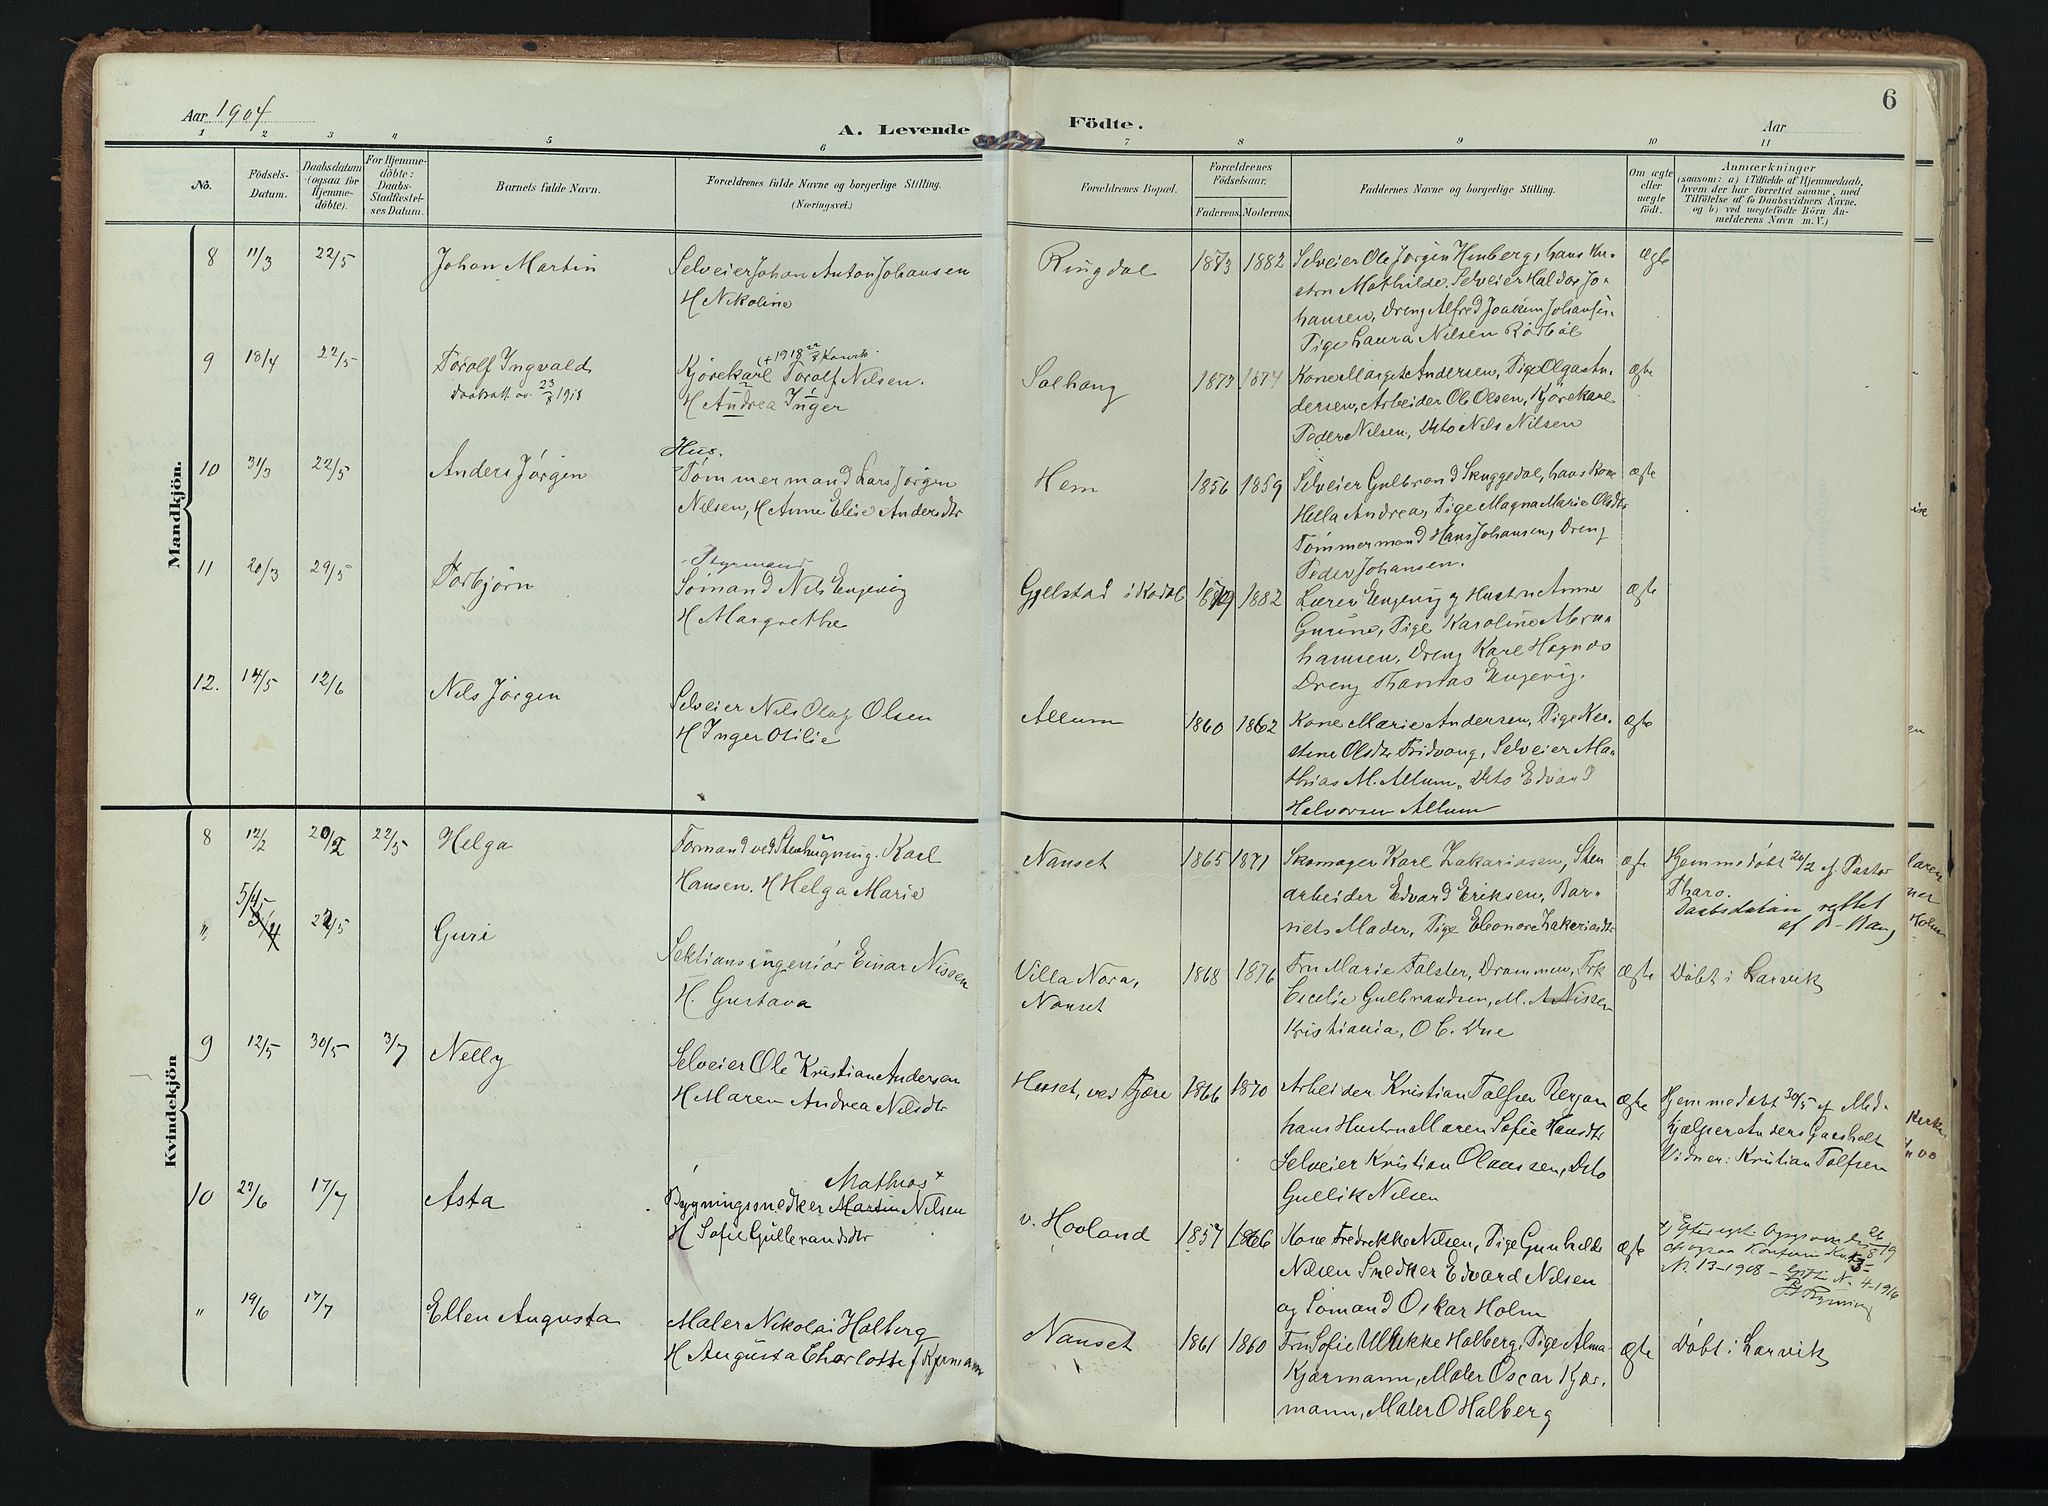 Aar 1904
A. Levende
Födte.
Aar
6
1 2 3 4 5 6 7 8 9 10 11
No.
Födsels-
Datum.
Daabsdatum
(ogsaa for
Hjemme-
döbte).
For Hjemme-
döbte:
Daabs-
Stadfæstel-
ses Datum.
Barnets fulde Navn.
Forældrenes fulde Navne og borgerlige Stilling.
(Næringsvei.)
Forældrenes Bopæl.
Forældrenes
Födselsaar.
Faderens. Moderens.
Faddernes Navne og borgerlige Stilling.
Om ægte
eller
uægte
født.
Anmærkninger
(saasom: a) i Tilfælde af Hjemmedaab,
hvem der har forrettet samme, med
Tilföielse af to Daabsvidners Navne.
og b) ved uægtefödte Börn An-
melderens Navn m. V.)
Mandkjön.
8 11/3 22/5 Johan Martin
Selveier Johan Anton Johansen
H Nikoline
Ringdal 1873 1882
Selveier Ole Jørgen Himberg, hans Hu-
stru Mathilde. Selveier Haldor Jo-
hansen, Dreng Alfred Joakim Johansen
Pige Laura Nilsen Rødbøl
Ægte
9 18/4 22/5 Torolf Ingvald
Daabsatt. av. 23/8 1918
(+ 1918 22/8
Kjørekarl Torolf Nilsen.
H Andrea Inger
Solhaug 1873 1874
Kone Margit Andersen, Pige Olga An-
dersen, Arbeider Ole Olsen, Kjørekarl
Peder Nilsen, Dito Nils Nilsen
Ægte
10 31/3 22/5 Anders Jørgen
Hus.
Tømmermand Lars Jørgen
Nilsen, H Anne Elise Andersdtr
Hem 1856 1859
Selveier Gulbrand Skuggedal, hans Kone
Hella Andrea, Pige Magna Marie Olsdtr
Tømmermand Hans Johansen, Dreng
Peder Johansen.
Ægte
11 20/3 29/5 Torbjørn
Styrmand
Sømand Nils Engevig
H Margrethe
Gjelstad i Kodal 1879 1882
Lærer Engevig og Hustru Anne
Gurine, Pige Karoline Abra-
hamsen, Dreng Karl Hagnæs
Dreng Thomas Engevig.
Ægte
12. 14/5 12/6 Nils Jørgen
Selveier Nils Olaf Olsen
H Inger Otilie
Allum 1860 1862
Kone Marie Andersen, Pige Ker-
stine Olsdtr Fridvang, Selveier Ma-
thias M. Allum, Dito Edvard
Halvorsen Allum
Ægte
Kvindekjön
8 12/2 20/2 22/5 Helga
Formand ved Stenhugning. Karl
Hansen. H Helga Marie
Nanset 1865 1871
Skomager Karl Zakariasen, Sten
arbeider Edvard Eriksen, Bar-
nets Moder, Pige Eleonore Zakariasdtr
Hjemmedøbt 20/2 af Pastor
Tharo.
Daabsdatum rettet
af
" 5/4 22/5 Guri
Sektionsingeniør Einar Nissen
H. Gustava
Villa Nora,
Nanset
1868 1876
Fru Marie Falster, Drammen, Frk
Cecilie Gulbrandsen, M. A Nissen
Kristiania, O C. Due
Ægte
Døbt i Larvik
9 12/5 30/5 3/7 Nelly
Selveier Ole Kristian Andersen
H Maren Andrea Nilsdtr
Hesset, ved Fjære 1866 1870
Arbeider Kristian Tolfsen Bergan
hans Hustru Maren Sofie Hansdtr
Selveier Kristian Olaussen, Dito
Gullik Nilsen
Ægte
Hjemmedøbt 30/5 af Med-
hjælper Anders Gaasholt
Vidner: Kristian Tolfsen
10 23/6 17/7 Asta
Mathias +
Bygningssnedker Martin Nilsen
H Sofie Gulbrandsdtr
v. Hovland 1857 1866
Kone Fredrikke Nilsen, Pige Gunhilde
Nilsen Snedker Edvard Nilsen
og Sømand Oskar Holm
Ægte
N. 13-1908 - N. 4-1916
" 19/6 17/7 Ellen Augusta
Maler Nikolai Holberg
H Augusta Charlotte f Kjærmann
Nanset 1861 1860
Fru Sofie Ulrikke Holberg, Pige Alma
Kjærmann, Maler Oscar Kjær-
mann, Maler O Holberg
Ægte
Døbt i Larvik